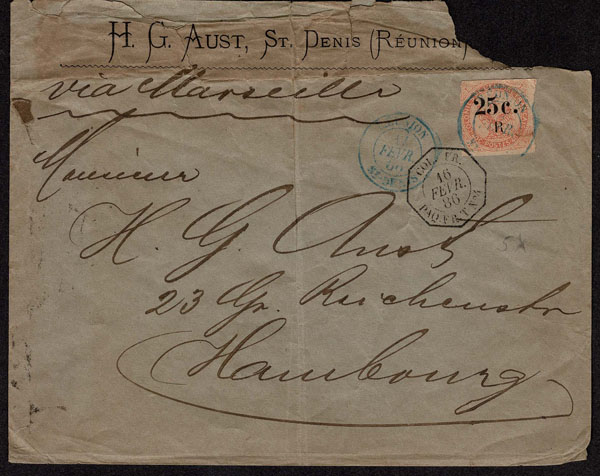 H. G. AUST, ST. DENIS (RÉUNION)
via Marseille
25c.
R
POSTES
FEVR.
16
FEVR.
86
PAQ. FR. T. No
Monsieur
H. G. Aust
23 Gr. Reichenstr
Hambourg